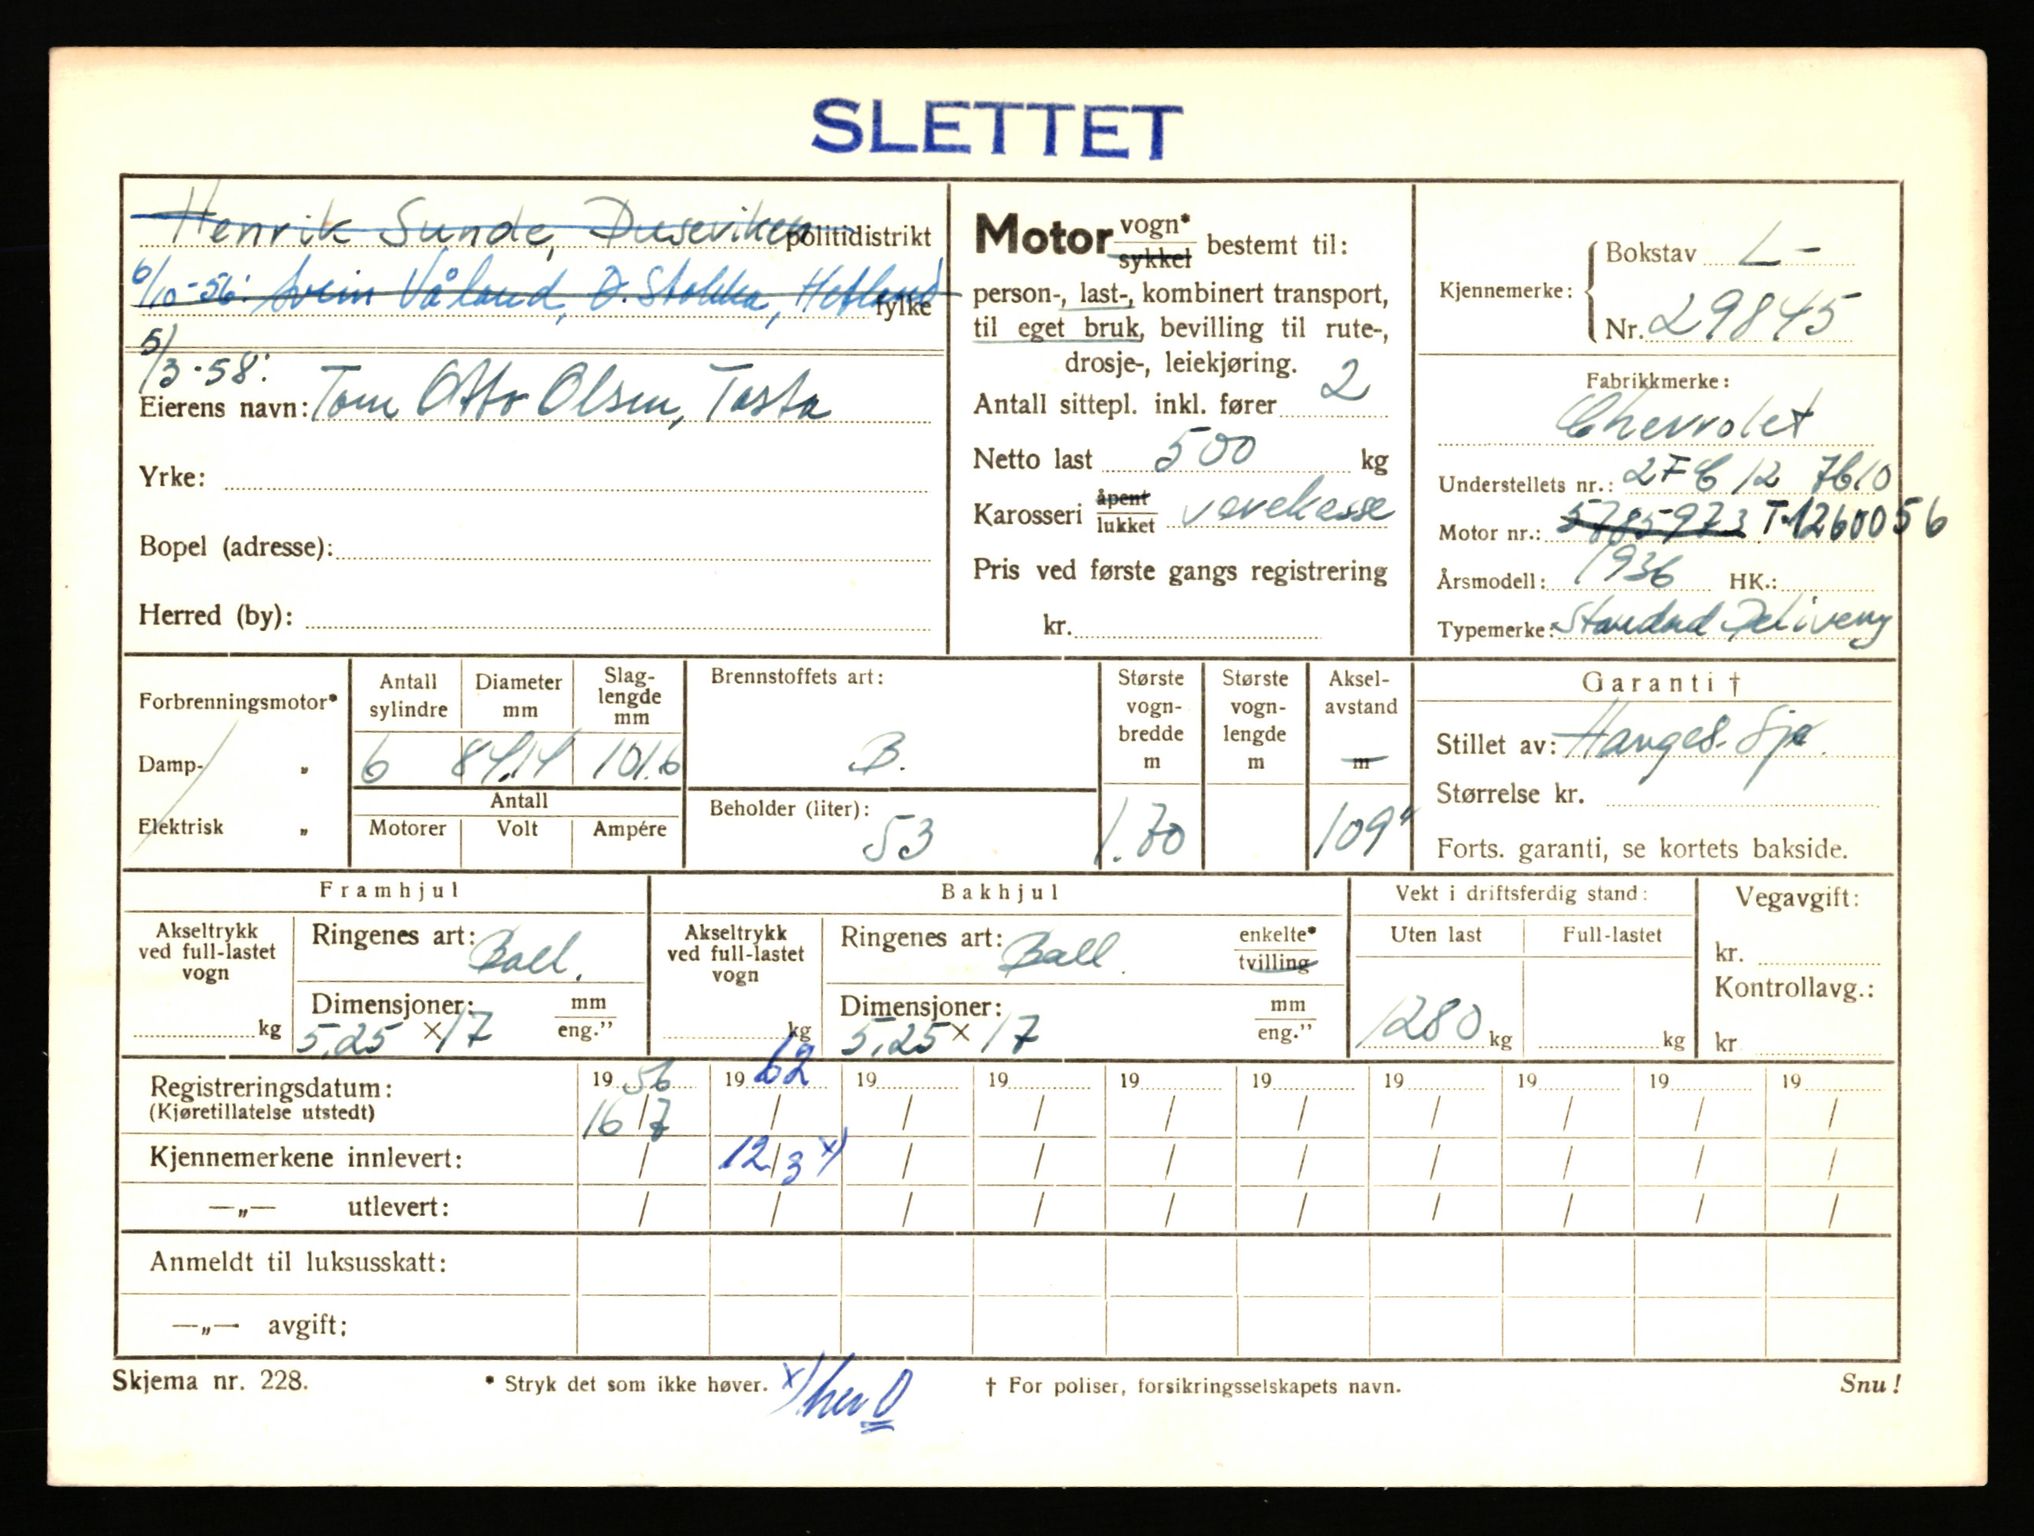 SLETTET
Henrik Sunde, Duseviken politidistrikt
6/10-56: Svein Våland, D. Stokka, Hetland fylke
5/3-58:
Eierens navn: Tom Otto Olsen, Tasta
Yrke:
Bopel (adresse):
Herred (by):
Motor vogn* / sykkel bestemt til:
person-, last-, kombinert transport,
til eget bruk, bevilling til rute-,
drosje-, leiekjøring.
Antall sittepl. inkl. fører 2
Netto last 500 kg
Karosseri åpent / lukket varekasse
Pris ved første gangs registrering
kr.
Kjennemerke: Bokstav L-
Nr. 29845
Fabrikkmerke:
Chevrolet
Understellets nr.: 2 F C 12 7610
Motor nr.: 5785973 T-1260056
Årsmodell: 1936 HK.:
Typemerke: Standard Delivery
Forbrenningsmotor*
Damp- „
Elektrisk „
Antall sylindre
Diameter mm
Slag-lengde mm
6 84,14 101.6
Antall
Motorer Volt Ampére
Brennstoffets art:
B.
Beholder (liter):
53
Største vogn-bredde m
1.70
Største vogn-lengde m
Aksel-avstand m
109"
Garanti †
Stillet av: Hauges. Sjø.
Størrelse kr.
Forts. garanti, se kortets bakside.
Framhjul
Akseltrykk ved full-lastet vogn
kg
Ringenes art: Ball.
Dimensjoner: mm / eng.”
5,25 x 17
Bakhjul
Akseltrykk ved full-lastet vogn
kg
Ringenes art: Ball. enkelte* / tvilling
Dimensjoner: mm / eng.”
5,25 x 17
Vekt i driftsferdig stand:
Uten last Full-lastet
1280 kg kg
Vegavgift:
kr.
Kontrollavg.:
kr
Registreringsdatum: 19 56 19 62 19 19 19 19 19 19 19 19
(Kjøretillatelse utstedt) 16/7 / / / / / / / / /
Kjennemerkene innlevert: / 12/3 x) / / / / / / / /
—„— utlevert: / / / / / / / / / /
Anmeldt til luksusskatt:
—„— avgift:
Skjema nr. 228. * Stryk det som ikke høver. x) her 0 † For poliser, forsikringsselskapets navn. Snu!